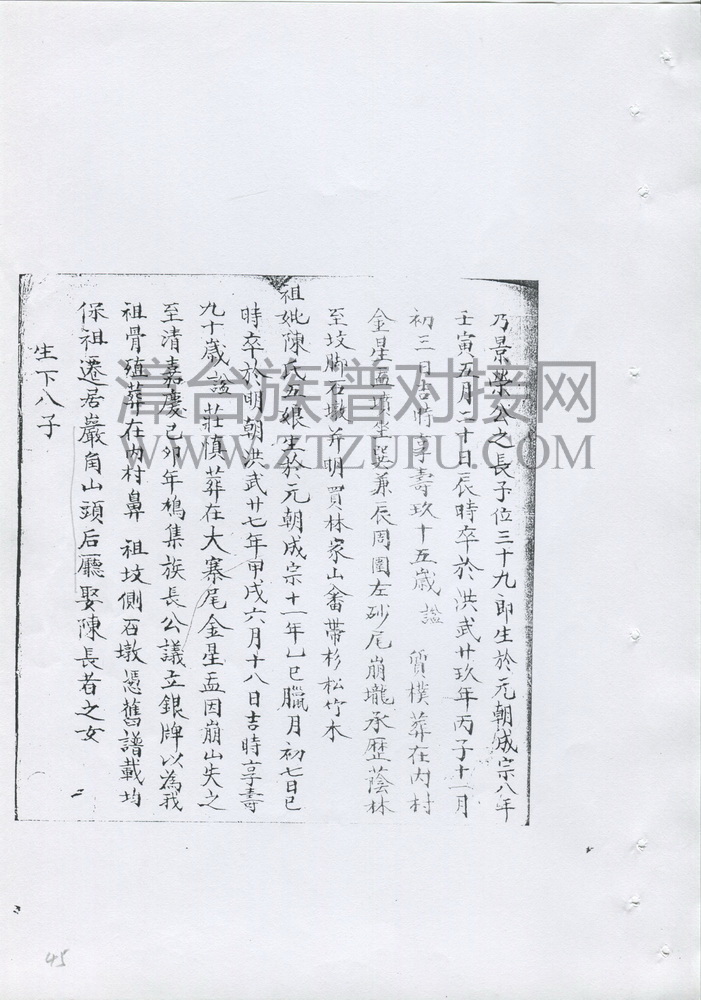 乃景榮公之長子位三十九郎生於元朝成宗八年
壬寅五月二十日辰時卒於洪武廿玖年丙子十一月
初三日吉時享壽玖十五歲 謚 質樸葬在內村
金星盂墳坐巽兼辰周圍左砂尾崩壠承歷蔭林
至坟脚石墩并明買林家山畬帶杉松竹木
祖妣陳氏五娘生於元朝成宗十一年乙巳臘月初七日巳
時卒於明朝洪武廿七年甲戌六月十八日吉時享壽
九十歲謚莊慎葬在大寨尾金星盂因崩山失之
至清嘉慶己卯年鳩集族長公議立銀牌以為我
祖骨殖葬在內村鼻 祖坟側石墩憑舊譜載均
保祖遷居巖角山頭后廳娶陳長者之女
生下八子
漳台族谱对接网
WWW.ZTZUPU.COM
45